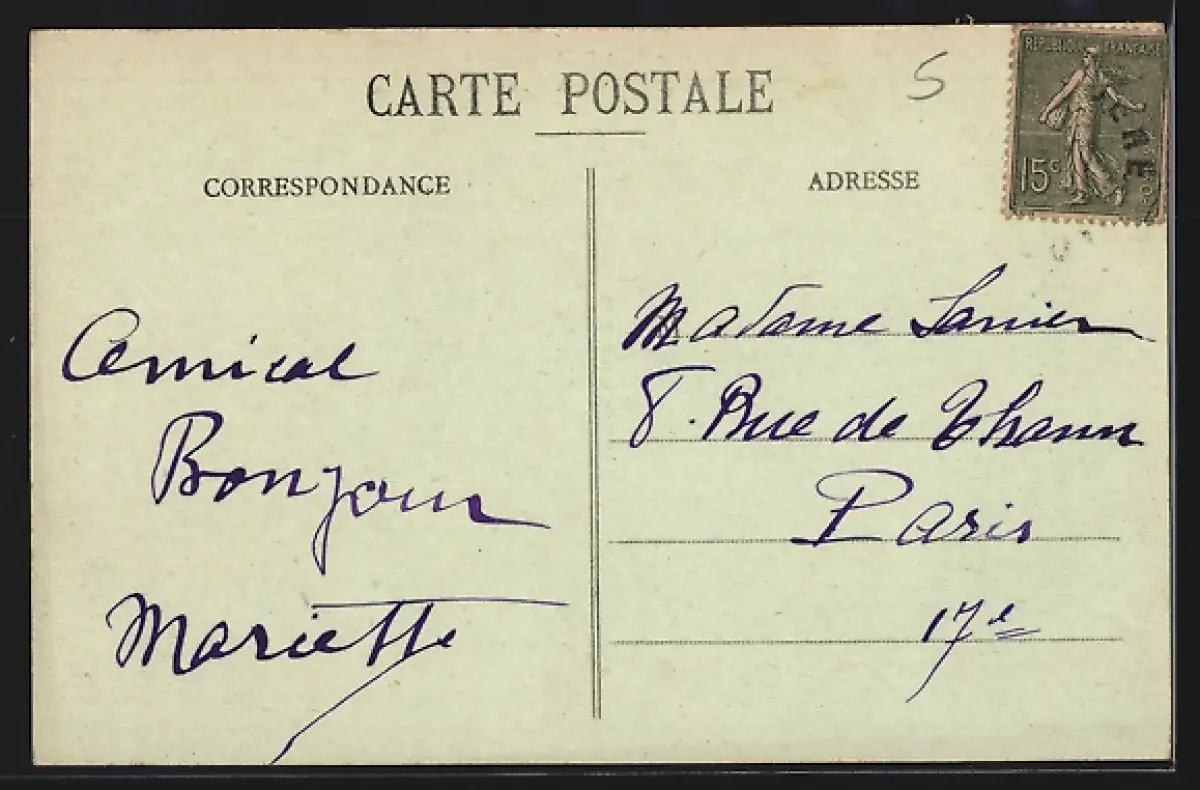 CARTE POSTALE
5
REPUBLIQUE FRANCAISE
15c
CORRESPONDANCE
ADRESSE
Amical
Bonjour
Mariette
Madame Lanier
8. Rue de Thann
Paris
17e